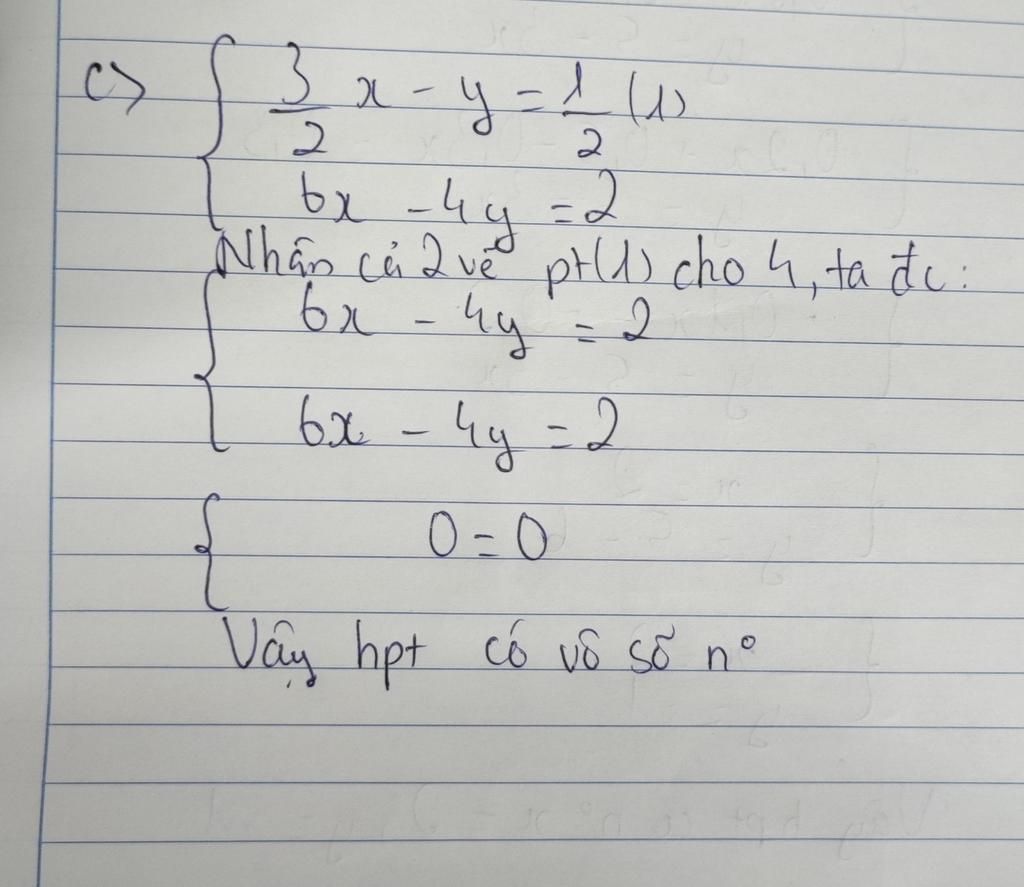 c> { 3/2 x - y = 1/2 (1)
6x - 4y = 2
Nhân cả 2 vế pt(1) cho 4, ta đc:
{ 6x - 4y = 2
6x - 4y = 2
{ 0 = 0
Vậy hpt có vô số n°